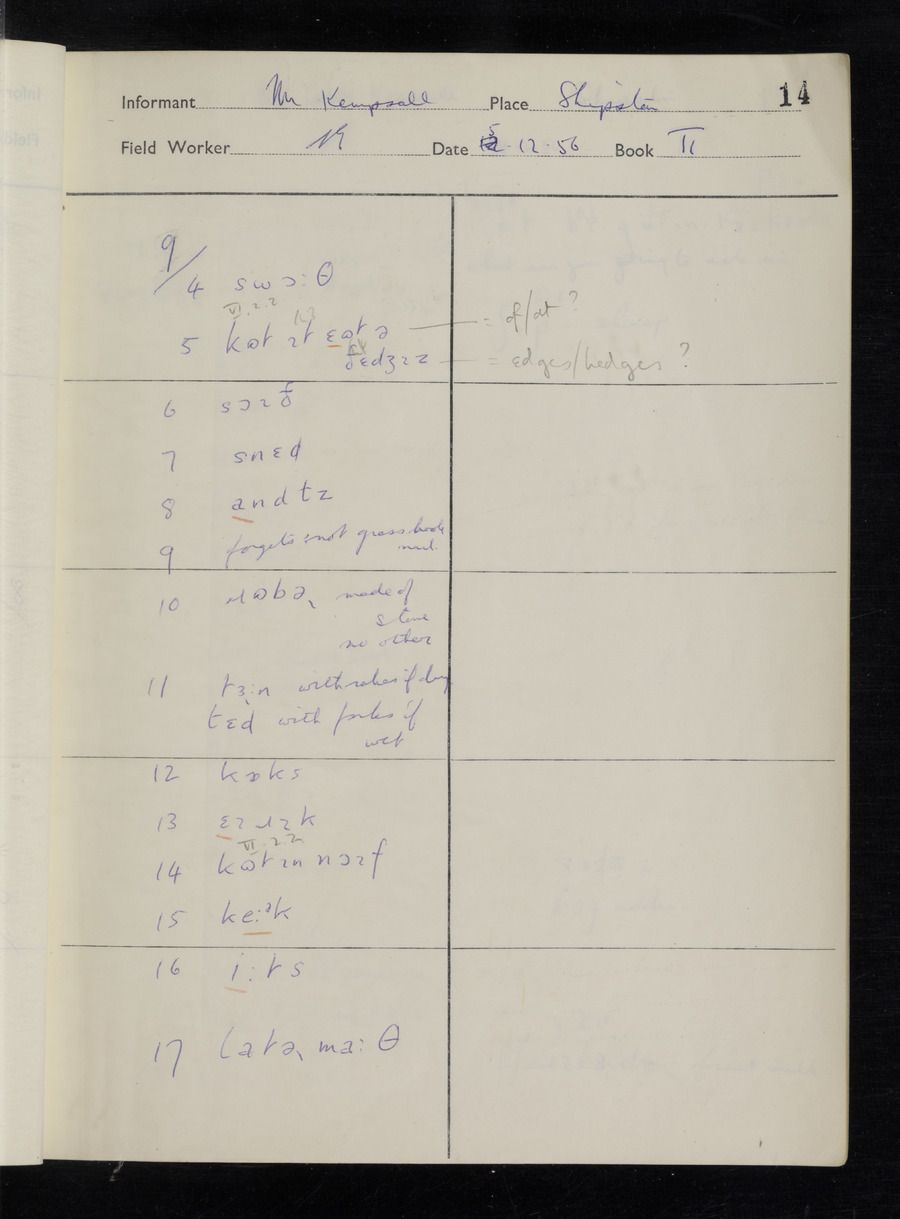 Informant Mr Kempsall Place Shipston 14
Field Worker Date 5.12.56 Book II
9/
4 swɔ:θ
VI.2.2
5 kɷt ɪt ɛɷt ə = of/at?
ðɛdʒɪz = edges/hedges?
6 sɔɪð
7 snɛd
8 andtz
9 not grass hook
10 ɹɷbə made of
stone
no other
11 tɜ:n with rakes if dry
tɛd with forks if
wet
12 kɒks
13 ɛɪɹɪk
VI.2.2
14 kɷtɪn nɔɪf
15 ke:ᵊk
16 i:ts
17 latə ma:θ